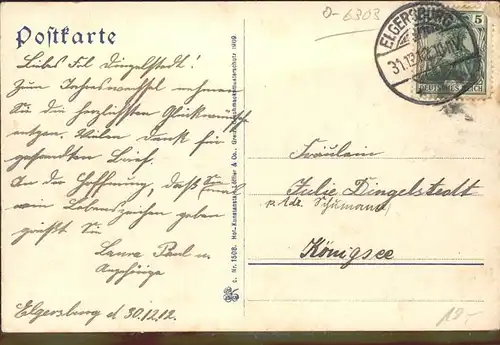 Postkarte
Liebes Frl. Dingelstedt!
Zum Jahreswechsel nehmen
Sie die herzlichsten Glückwünsche
entgegen. Vielen Dank für
gesandten Brief.
In der Hoffnung, daß Sie
ein Lebenszeichen geben
grüßt Sie
Laura Paul u
Angehörige
Elgersburg d 30.12.12.
G. Nr. 1508. Hof-Kunstanstalt Löffler & Co., Greiz. Geschmacksmusterschutz 1909
0-6303
ELGERSBURG
31.12.12. 10-11V.
5
DEUTSCHES REICH
Fräulein
Julie Dingelstedt
p. Adr. Schumann
Königsee
10.-